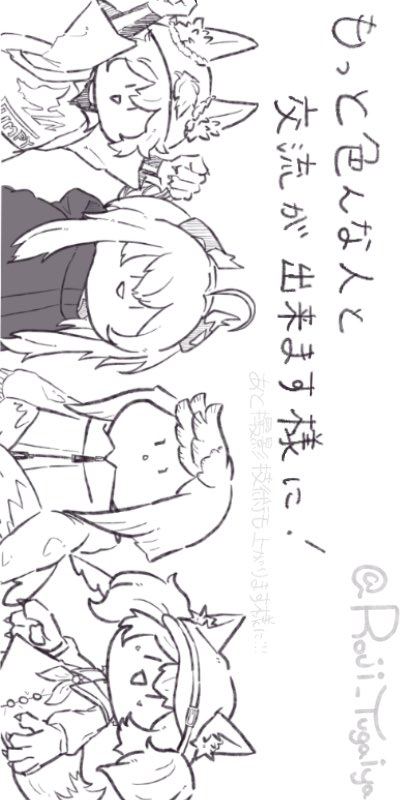 もっと色んな人と
交流が出来ます様に!
あと撮影技術も上がります様に!!
@Rouji_Tugaiya